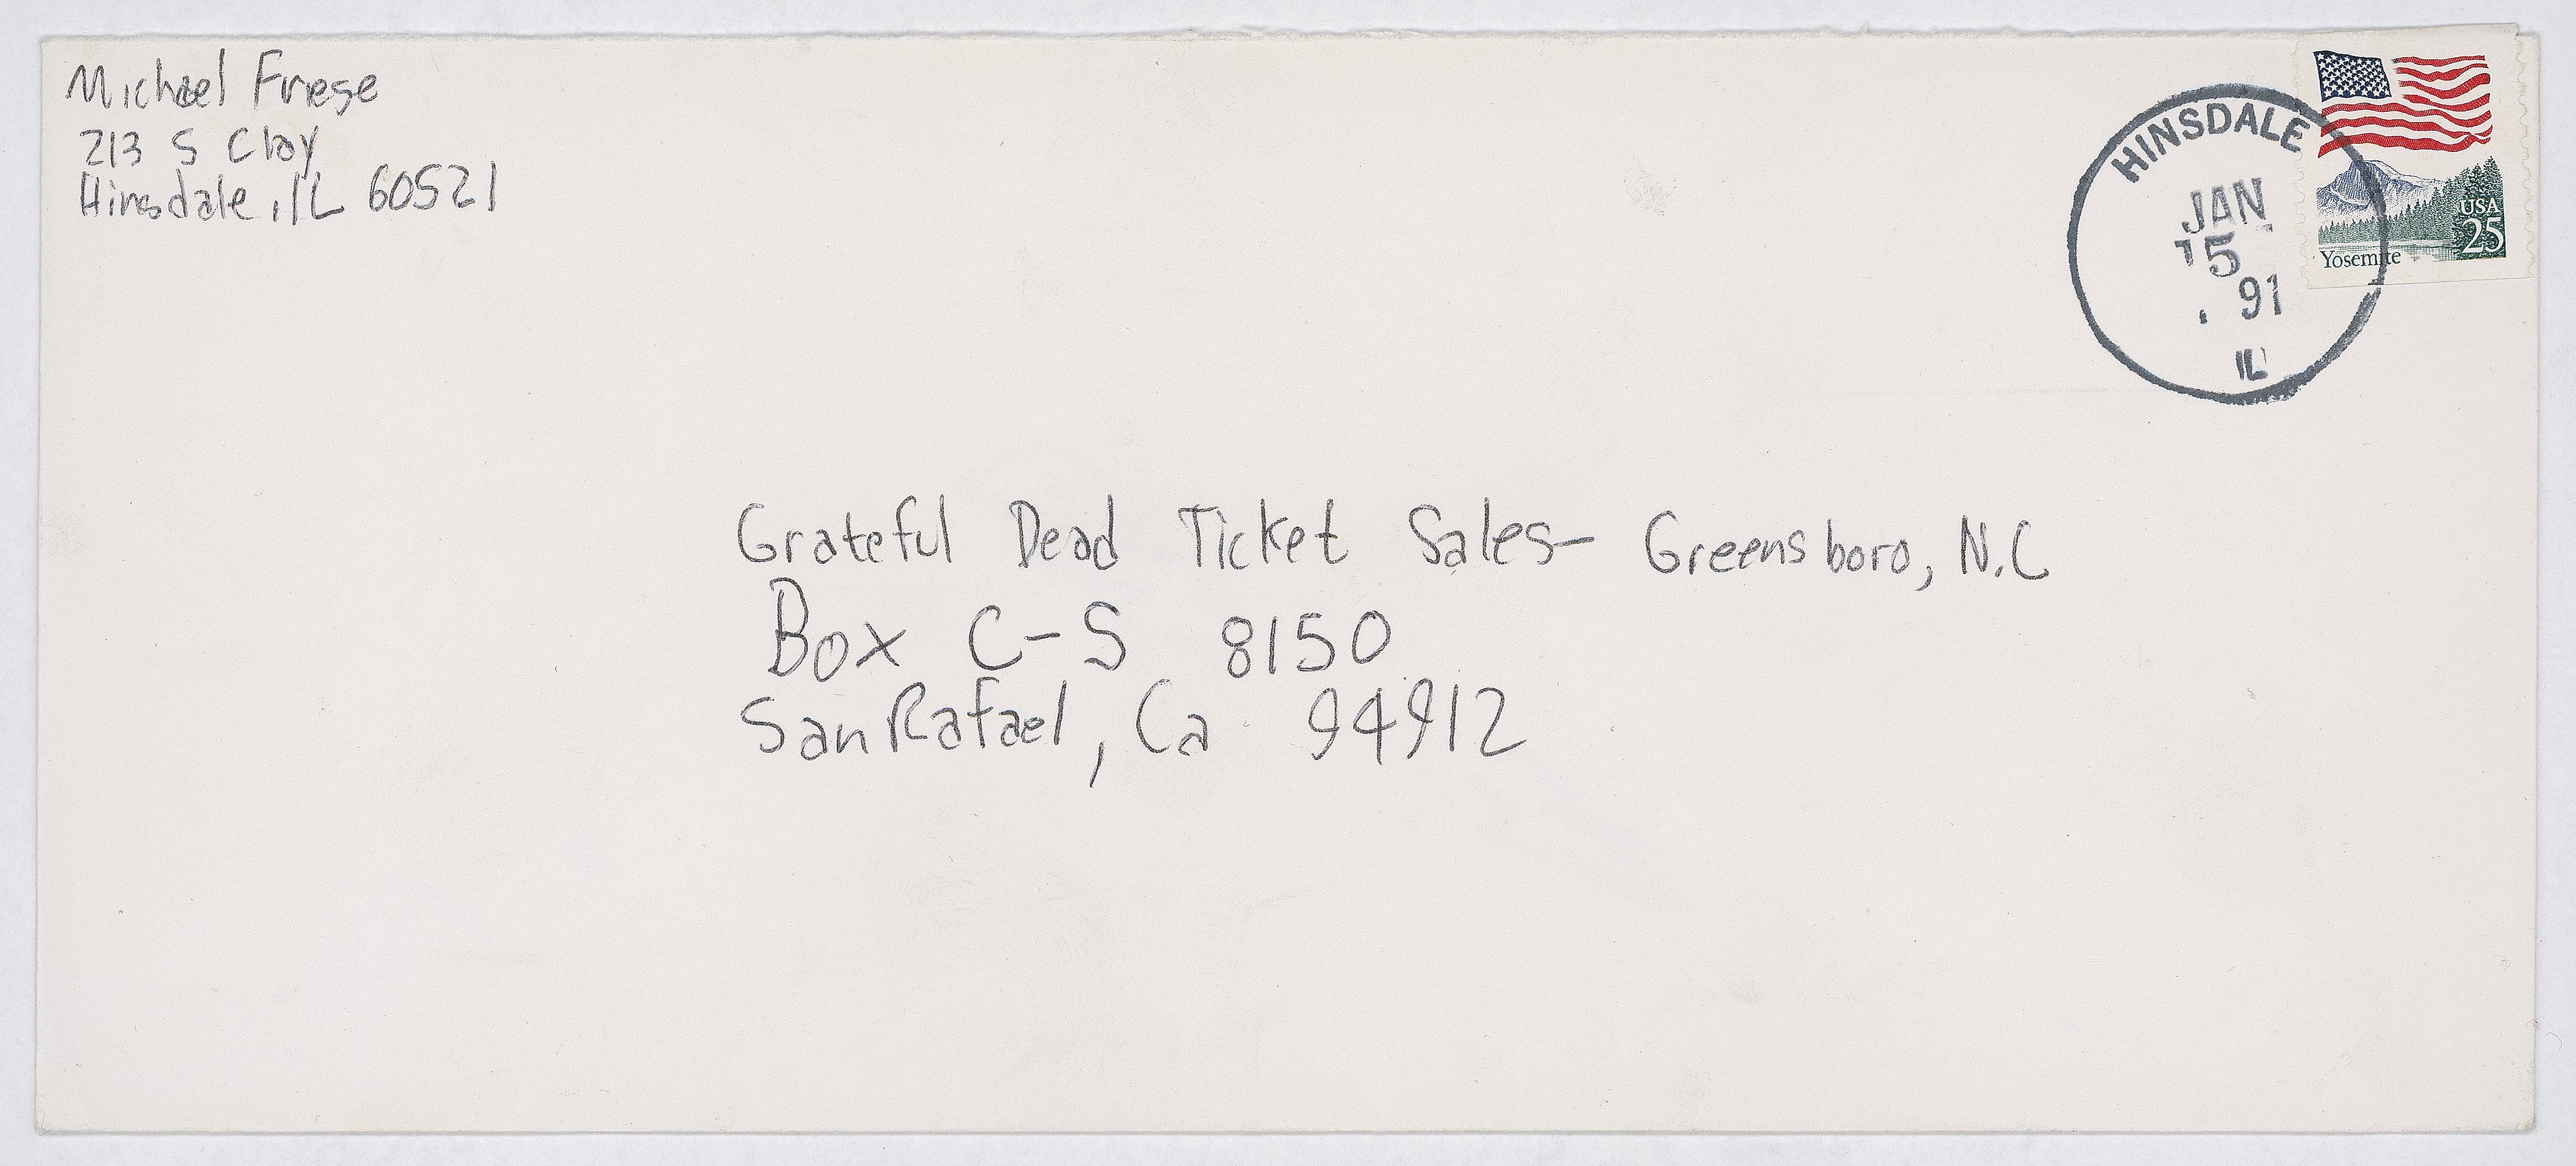 Michael Friese
213 S Clay
Hinsdale, IL 60521
HINSDALE
JAN
15
91
IL
USA
25
Yosemite
Grateful Dead Ticket Sales- Greensboro, N.C
Box C-S 8150
San Rafael, Ca 94912